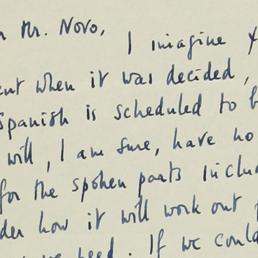 Mr. Novo,
I imagine
ent when it was decided,
Spanish is scheduled to b
will, I am sure, have no
for the spoken parts inclu
der how it will work out
need. If we coul